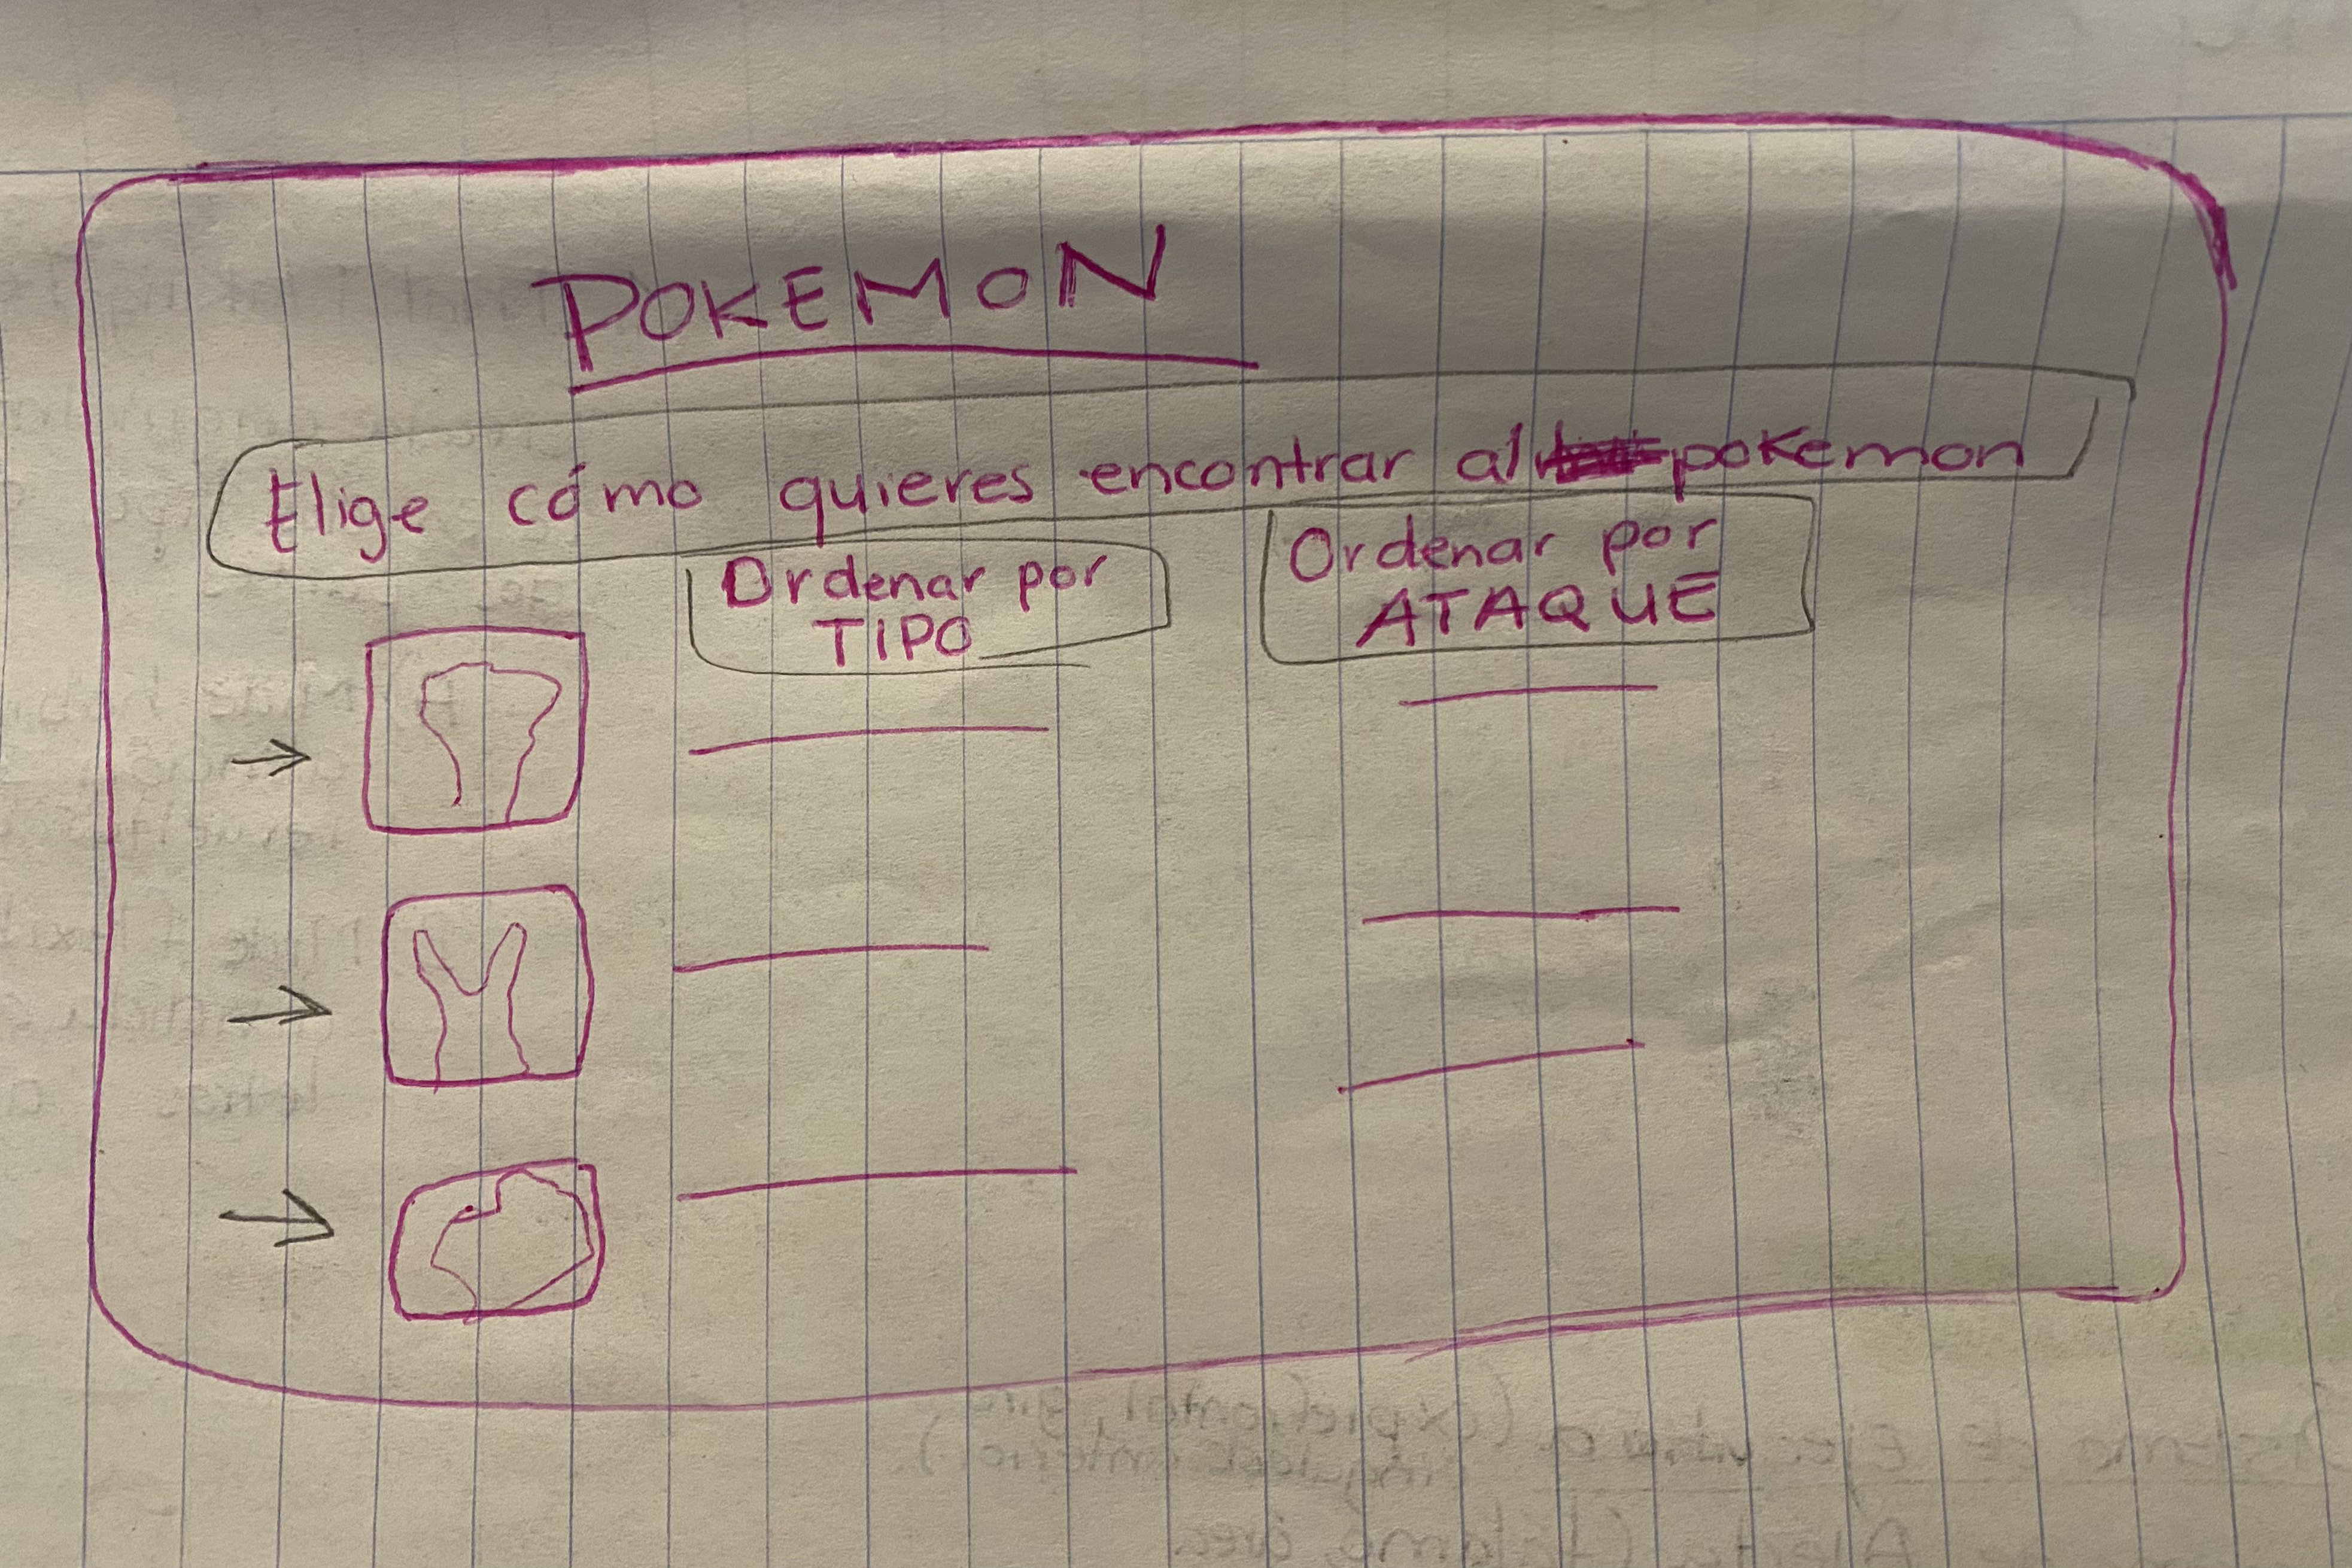 POKEMON
Elige cómo quieres encontrar al pokemon
Ordenar por
TIPO
Ordenar por
ATAQUE